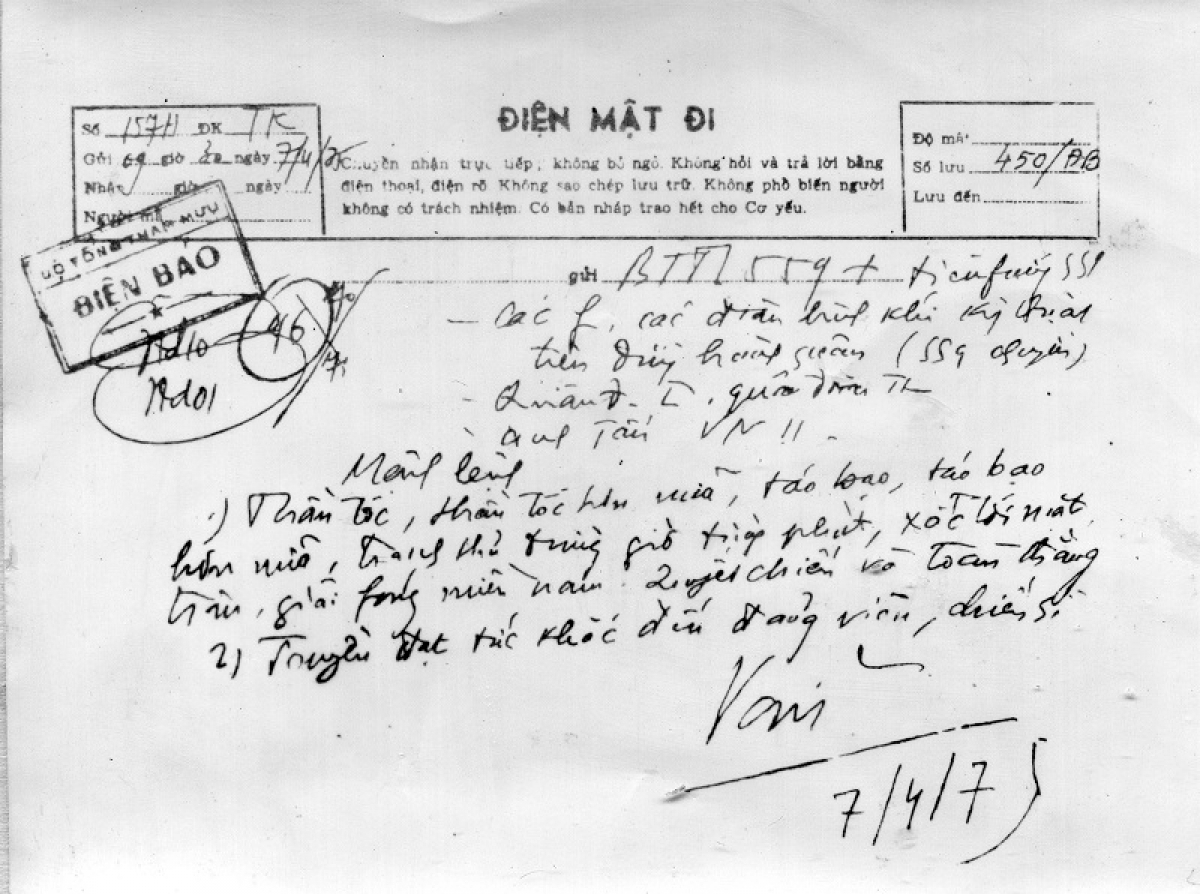 ĐIỆN MẬT ĐI
Số 157H ĐK TK
Gửi 09 giờ ngày 7/4/75
Nhận giờ ngày
Người mã
Chuyền nhận trực tiếp, không bỏ ngỏ. Không hỏi và trả lời bằng
điện thoại, điện rõ. Không sao chép lưu trữ. Không phổ biến người
không có trách nhiệm. Có bản nháp trao hết cho Cơ yếu.
Độ mật
Số lưu 450/ĐB
Lưu đến
BỘ TỔNG THAM MƯU
ĐIỆN BÁO
46
gửi BTTL 559 +
- Các f, các đơn binh khí kỹ thuật
tiến hành quân (559 chuyển)
- Quân đ.
- Anh Tấn
Mệnh lệnh
1) Thần tốc, thần tốc hơn nữa, táo bạo, táo bạo
hơn nữa, tranh thủ từng giờ từng phút, xốc tới mặt
trận, giải fóng miền nam. Quyết chiến và toàn thắng
2) Truyền đạt tức khắc đến đảng viên, chiến sĩ
Văn
7/4/75